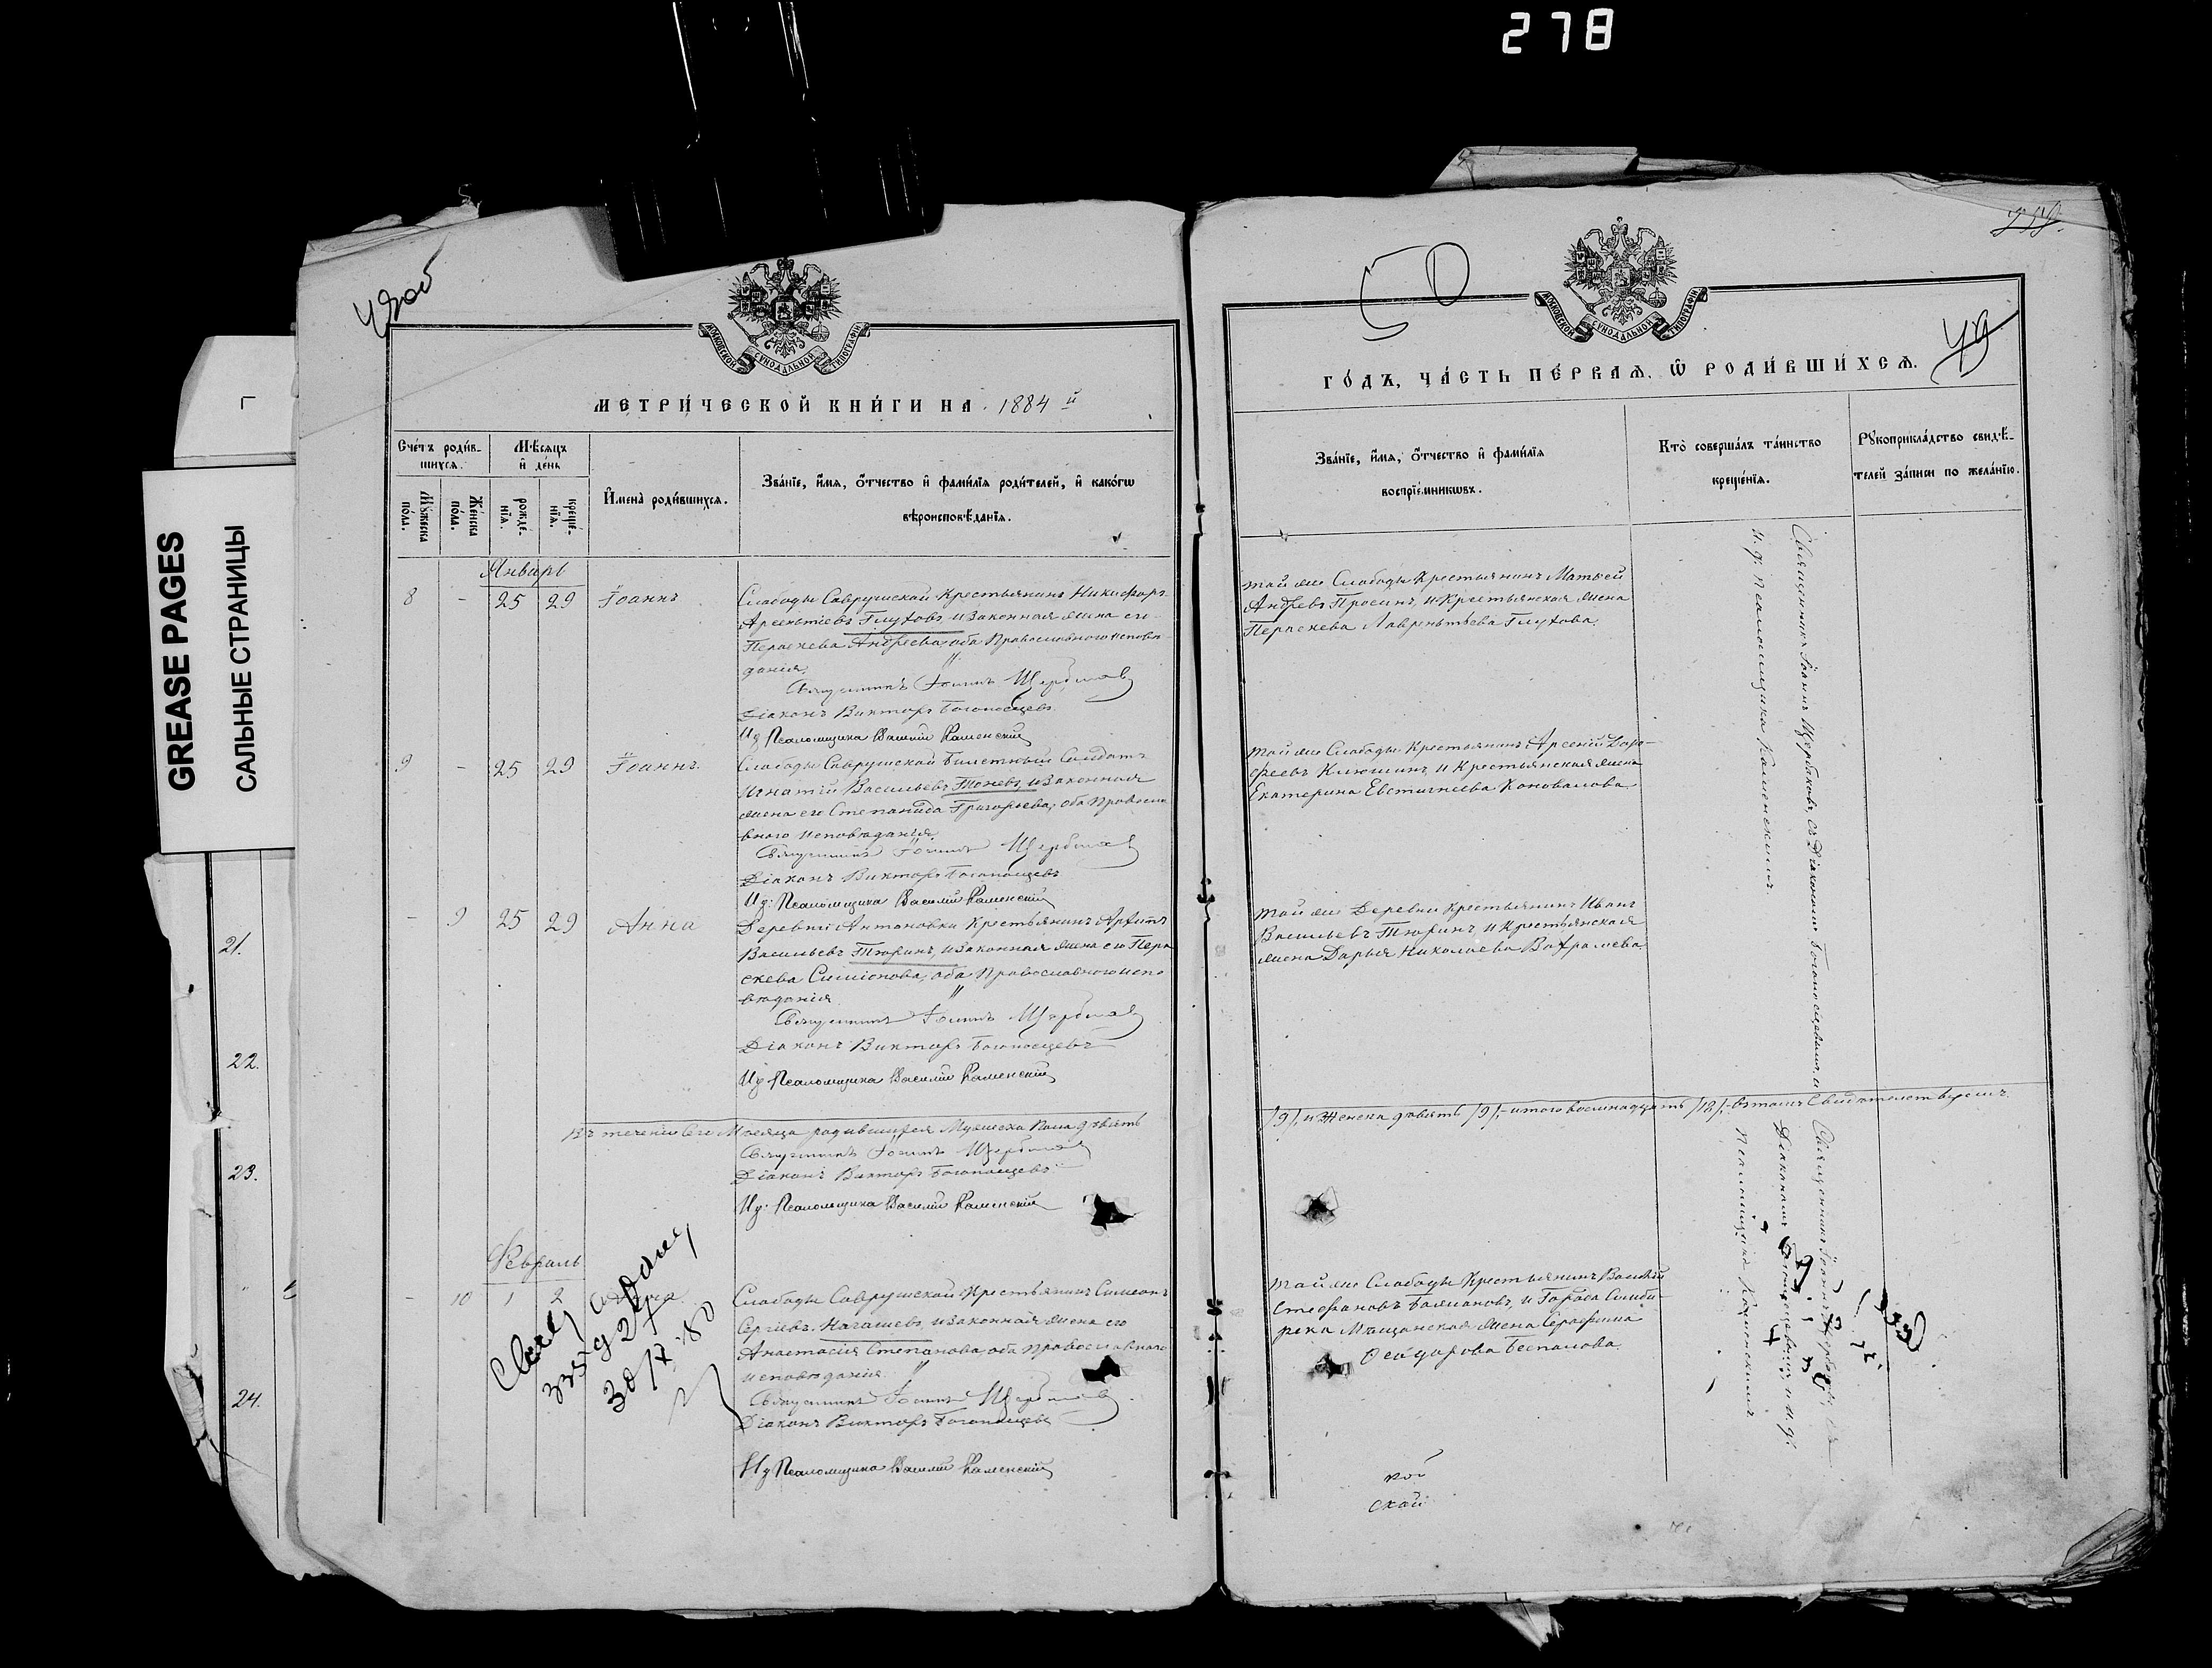 278
GREASE PAGES
САЛЬНЫЕ СТРАНИЦЫ
21.
22.
23.
24.
МОСКОВСКОЙ СѴНОДАЛЬНОЙ ТИПОГРАФІИ
МЕТРИ́ЧЕСКОЙ КНИ́ГИ НА 1884 й
Сче́тъ роди́в-
шихся.
Мѣ́сяцъ
и҆ де́нь
Мꙋ́жеска
по́ла.
Же́нска
по́ла.
рожде́-
нїѧ.
креще́-
нїѧ.
И҆мена̀ роди́вшихсѧ.
Зва́нїе, и҆́мѧ, ѻ҆́тчество и҆ фами́лїѧ роди́телей, и҆ како́гѡ
вѣроисповѣ́данїѧ.
Январь
8 - 25 29 Іоаннъ
Слободы Саврушской Крестьянинъ Никифоръ
Арсентіевъ Глуховъ, и законная жена его
Параскева Андреева, оба Православного исповѣ
данія.
Священникъ Іоаннъ Щербаковъ
Діаконъ Викторъ Богоносцевъ
И д Псаломщика Василій Каменскій
9 - 25 29 Іоаннъ
Слободы Саврушской Билетный Солдатъ
Игнатій Васильевъ Тоневъ, и законная
жена его Степанида Григорьева, оба Правосла
вного исповѣданія.
Священникъ Іоаннъ Щербаковъ
Діаконъ Викторъ Богоносцевъ
И д: Псаломщика Василій Каменскій
- 9 25 29 Анна
Деревни Антоновки Крестьянинъ Архипъ
Васильевъ Тюринъ, и законная жена его Пара
скева Симіонова, оба Православного испо
вѣданія
Священникъ Іоаннъ Щербаковъ
Діаконъ Викторъ Богоносцевъ
И д Псаломщика Василій Каменскій
Въ теченіи сего Месяца родившихся Мужеска Пола девять
Священникъ Іоаннъ Щербаковъ
Діаконъ Викторъ Богоносцевъ
И д: Псаломщика Василій Каменскій
Февраль
- 10 1 2
Слободы Саврушской Крестьянинъ Симеонъ
Сергіевъ Нагашевъ, и законная жена его
Анастасія Степанова, оба Православнаго
исповѣданія
Священникъ Іоаннъ Щербаковъ
Діаконъ Викторъ Богоносцевъ
И д Псаломщика Василій Каменскій
50
49
МОСКОВСКОЙ СѴНОДАЛЬНОЙ ТИПОГРАФІИ
ГО́ДЪ, ЧА́СТЬ ПЕ́РВАѦ, Ѽ РОДИ́ВШИХСѦ.
Зва́нїе, и҆́мѧ, ѻ҆́тчество и҆ фами́лїѧ
воспрїе́мникѡвъ.
Кто̀ соверша́лъ та́инство
креще́нїѧ.
Рꙋкоприкла́дство свидѣ́-
телей за́писи по жела́нїю.
той же Слободы Крестьянинъ Матвей
Андреевъ Просинъ, и Крестьянская жена
Параскева Лаврентьева Глухова.
той же Слободы Крестьянинъ Арсеній Доро-
феевъ Клюшинъ, и Крестьянская жена
Екатерина Евстигнеева Коновалова
той же Деревни Крестьянинъ Иванъ
Васильевъ Тюринъ, и Крестьянская
жена Дарья Николаева Вахрамеева
Священникъ Іоаннъ Щербаковъ, съ Діакономъ Богоносцевымъ, и
и. д: Псаломщика Каменскимъ
/9/, и Женска девять /9/, итого восемнадцать /18/,
той же Слободы Крестьянинъ Василій
Стефановъ Балмановъ, и Города Симби-
рска Мѣщанская жена Серафима
Ѳеодорова Беспалова
Священникъ Іоаннъ Щербаковъ съ
Діакономъ Богоносцевымъ и и. д:
Псаломщика Каменскимъ
ской